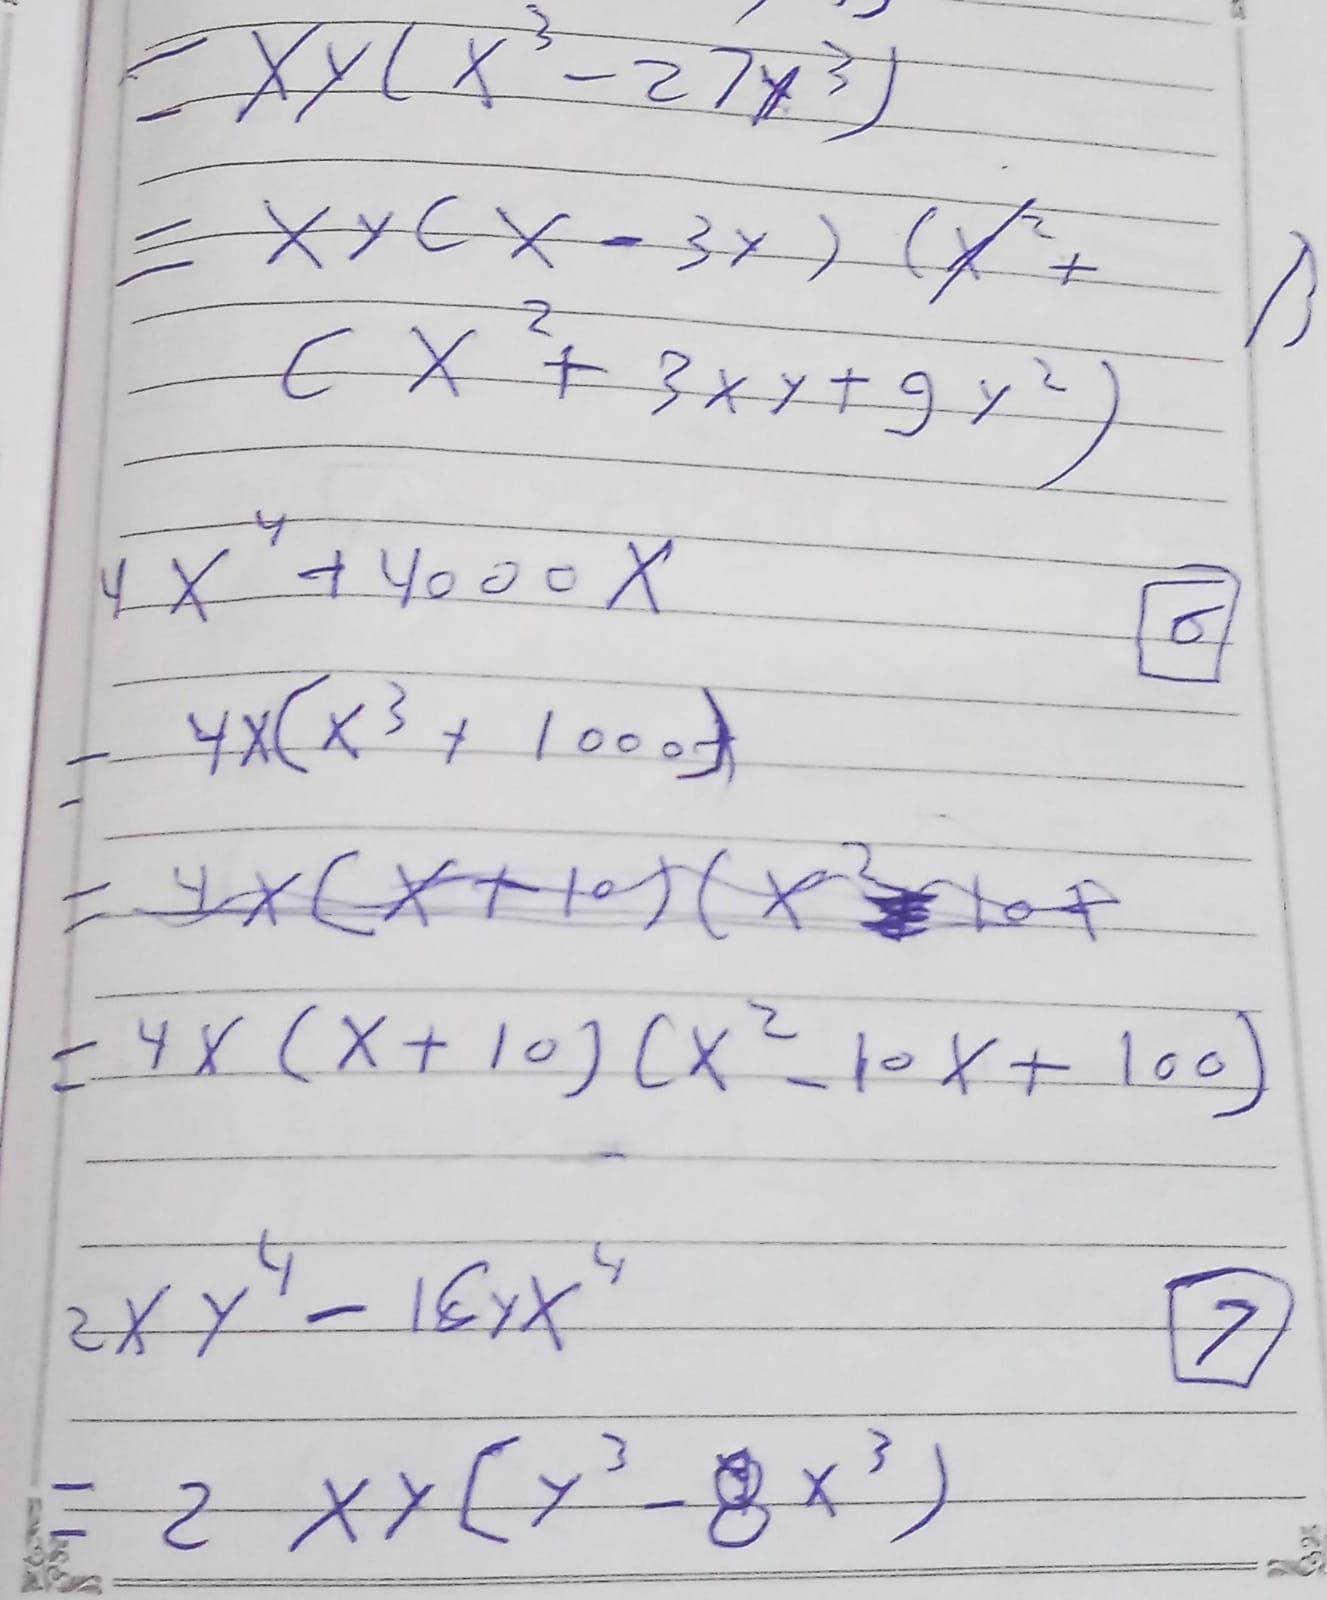 = xy(x³ - 27y³)
= xy(x - 3y) (x² +
(x² + 3xy + 9y²)
4x⁴ + 4000x
6
= 4x(x³ + 1000)
= 4x(x + 10)(x² - 10x
= 4x(x + 10)(x² - 10x + 100)
2xy⁴ - 16yx⁴
7
= 2 xy(y³ - 8x³)